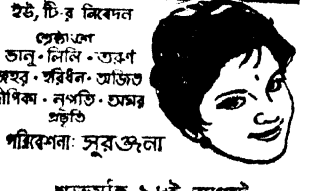 ইউ, টি·র নিবেদন
শ্রেষ্ঠাংশে
ভানু · লিলি · তরুণ
জহর · হরিধন · অজিত
দীপিকা · নৃপতি · অমর
প্রভৃতি
পরিবেশনা: সুরঞ্জনা